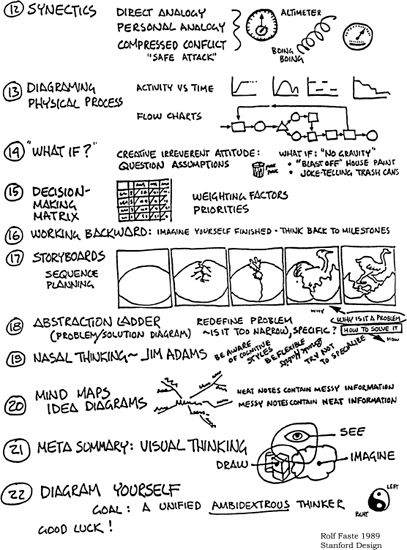 12 SYNECTICS
DIRECT ANALOGY
PERSONAL ANALOGY
COMPRESSED CONFLICT
"SAFE ATTACK"
ALTIMETER
BOING
BOING
13 DIAGRAMING
PHYSICAL PROCESS
ACTIVITY VS TIME
FLOW CHARTS
14 "WHAT IF?"
CREATIVE IRREVERENT ATTITUDE:
QUESTION ASSUMPTIONS
WHAT IF: "NO GRAVITY"
• "BLAST OFF" HOUSE PAINT
• JOKE-TELLING TRASH CANS
15 DECISION-
MAKING
MATRIX
WEIGHTING FACTORS
PRIORITIES
16 WORKING BACKWARD: IMAGINE YOURSELF FINISHED - THINK BACK TO MILESTONES
17 STORYBOARDS
SEQUENCE
PLANNING
18 ABSTRACTION LADDER
(PROBLEM/SOLUTION DIAGRAM)
REDEFINE PROBLEM
~IS IT TOO NARROW, SPECIFIC?
WHY
WHY IS IT A PROBLEM
HOW TO SOLVE IT
HOW
19 NASAL THINKING ~ JIM ADAMS
BE AWARE
OF COGNITIVE
STYLES
BE FLEXIBLE
TRY NOT
TO SPECIALIZE
20 MIND MAPS
IDEA DIAGRAMS
NEAT NOTES CONTAIN MESSY INFORMATION
MESSY NOTES CONTAIN NEAT INFORMATION
21 META SUMMARY: VISUAL THINKING
SEE
DRAW
IMAGINE
22 DIAGRAM YOURSELF
GOAL: A UNIFIED AMBIDEXTROUS THINKER
LEFT
RIGHT
GOOD LUCK!
Rolf Faste 1989
Stanford Design